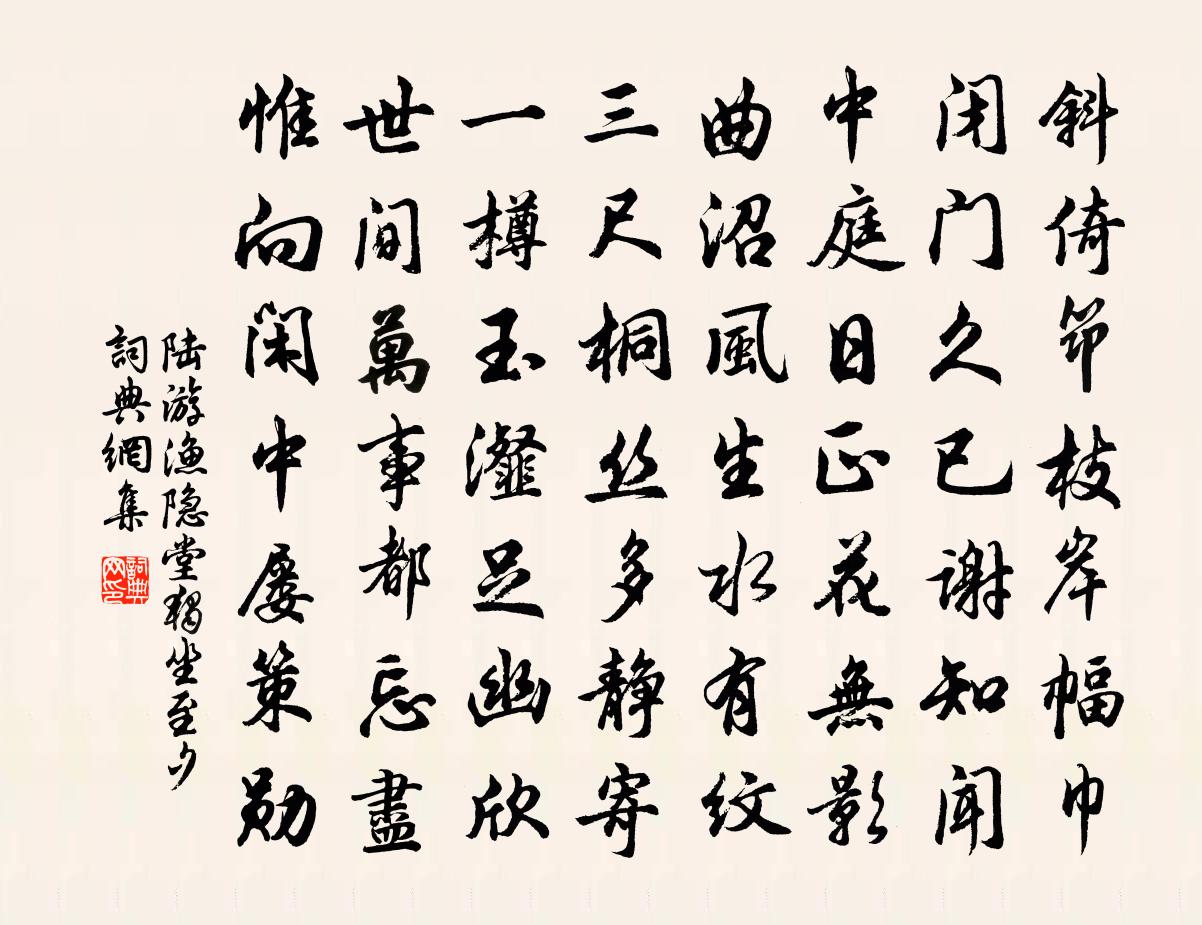 斜倚筇枝岸幅巾
闭门久已謝知闻
中庭日正花無影
曲沼風生水有纹
三尺桐丝多静寄
一樽玉瀣足幽欣
世间萬事都忘盡
惟向闲中屡策勋
陆游渔隐堂独坐至夕
詞典網集
詞典网印